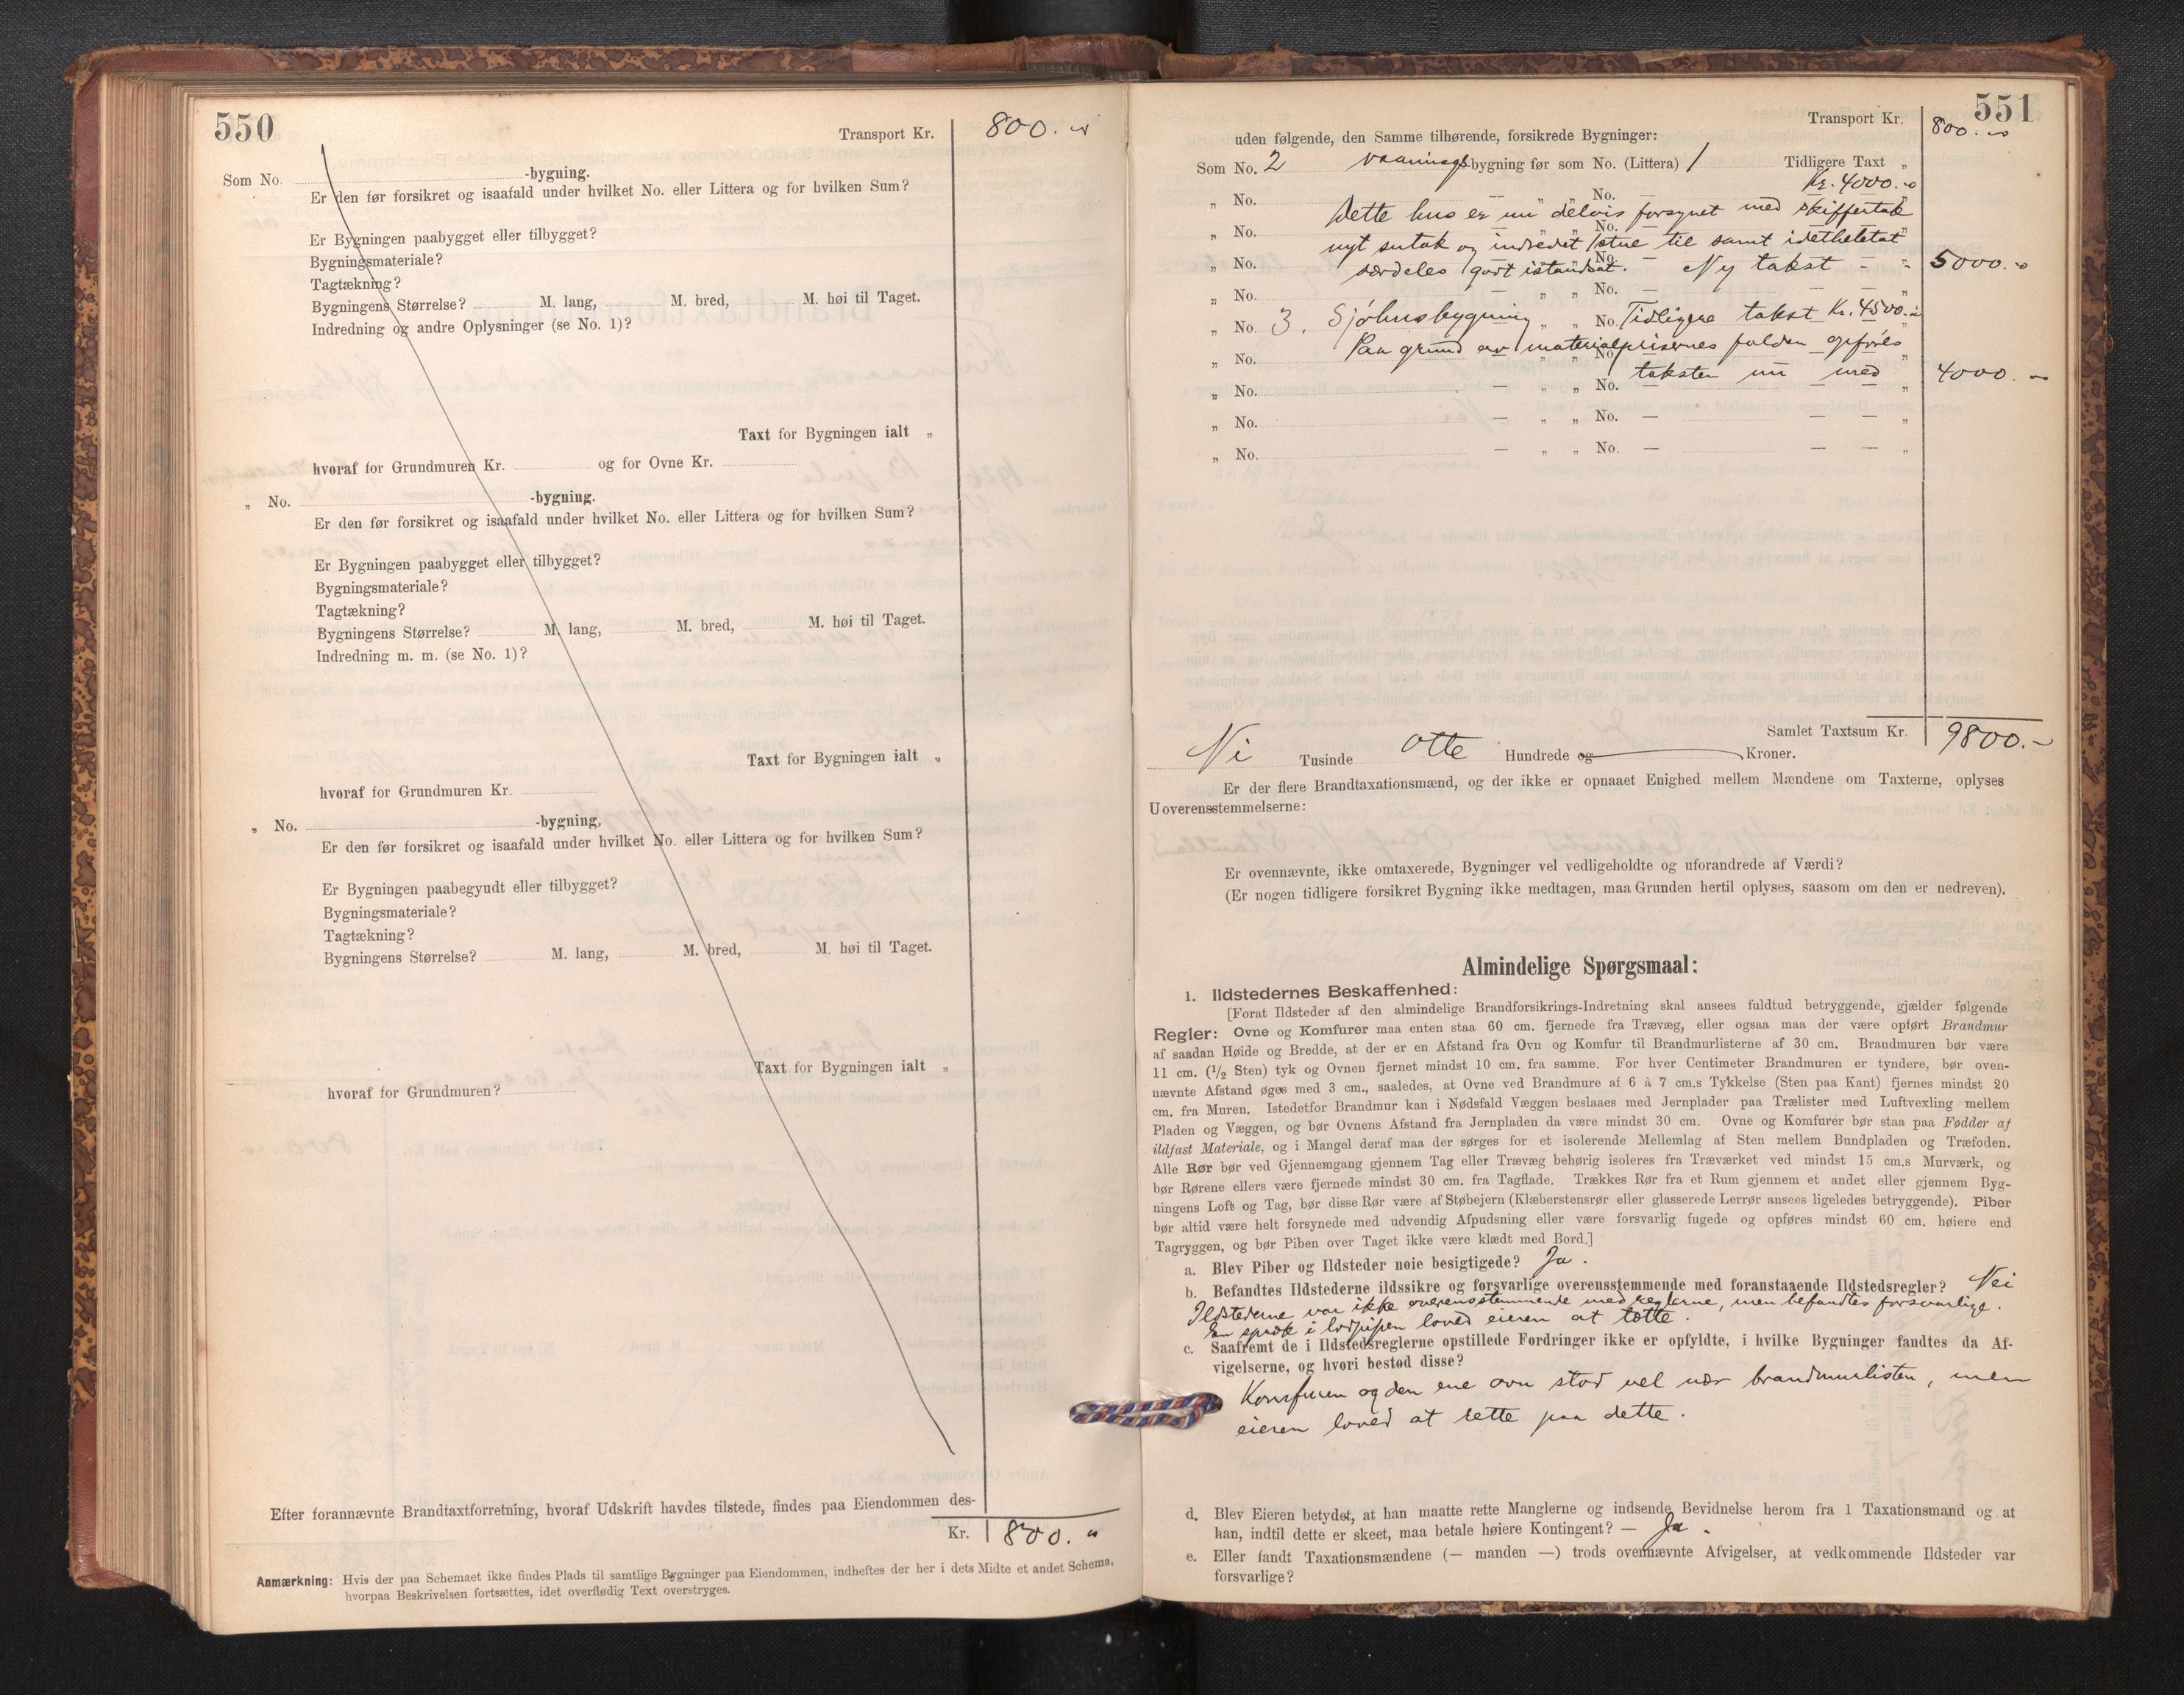 550
Transport Kr. 800.
Som No. -bygning.
Er den før forsikret og isaafald under hvilket No. eller Littera og for hvilken Sum?
Er Bygningen paabygget eller tilbygget?
Bygningsmateriale?
Tagtækning?
Bygningens Størrelse? M. lang, M. bred, M. høi til Taget.
Indredning og andre Oplysninger (se No. 1)?
Taxt for Bygningen ialt „
hvoraf for Grundmuren Kr. og for Ovne Kr.
„ No. -bygning.
Er den før forsikret og isaafald under hvilket No. eller Littera og for hvilken Sum?
Er Bygningen paabygget eller tilbygget?
Bygningsmateriale?
Tagtækning?
Bygningens Størrelse? M. lang, M. bred, M. høi til Taget.
Indredning m. m. (se No. 1)?
Taxt for Bygningen ialt „
hvoraf for Grundmuren Kr.
„ No. -bygning,
Er den før forsikret og isaafald under hvilket No. eller Littera og for hvilken Sum?
Er Bygningen paabegyudt eller tilbygget?
Bygningsmateriale?
Tagtækning?
Bygningens Størrelse? M. lang, M. bred, M. høi til Taget.
Taxt for Bygningen ialt „
hvoraf for Grundmuren?
Efter forannævnte Brandtaxtforretning, hvoraf Udskrift havdes tilstede, findes paa Eiendommen des-
Kr. 800. "
Anmærkning: Hvis der paa Schemaet ikke findes Plads til samtlige Bygninger paa Eiendommen, indheftes der her i dets Midte et andet Schema,
hvorpaa Beskrivelsen fortsættes, idet overflødig Text overstryges.
551
Transport Kr. 800.
uden følgende, den Samme tilhørende, forsikrede Bygninger:
Som No. 2 vaaningsbygning før som No. (Littera) 1 Tidligere Taxt „
Kr. 4000.
„ No. — „ „ No. —
Dette hus er nu delvis forsynet med skiffertak
„ No. — „ „ No. —
nyt sutak og indredet 1 stue til samt idetheletat
„ No. — „ „ No. —
særdeles godt istandsat. Ny takst 5000.
„ No. — „ „ No. — — — „
„ No. 3. Sjøhusbygning „ „ No. Tidligere takst Kr. 4500.
Paa grund av materialprisernes falden opføres
„ No. — „ „ No. — — — „
taksten nu med 4000. —
„ No. — „ „ No. — — — „
„ No. — „ „ No. — — — „
„ No. — „ „ No. — — — „
Samlet Taxtsum Kr. 9800.-
Ni Tusinde otte Hundrede og Kroner.
Er der flere Brandtaxationsmænd, og der ikke er opnaaet Enighed mellem Mændene om Taxterne, oplyses
Uoverensstemmelserne:
Er ovennævnte, ikke omtaxerede, Bygninger vel vedligeholdte og uforandrede af Værdi?
(Er nogen tidligere forsikret Bygning ikke medtagen, maa Grunden hertil oplyses, saasom om den er nedreven).
Almindelige Spørgsmaal:
1. Ildstedernes Beskaffenhed:
[Forat Ildsteder af den almindelige Brandforsikrings-Indretning skal ansees fuldtud betryggende, gjælder følgende
Regler: Ovne og Komfurer maa enten staa 60 cm. fjernede fra Trævæg, eller ogsaa maa der være opført Brandmur
af saadan Høide og Bredde, at der er en Afstand fra Ovn og Komfur til Brandmurlisterne af 30 cm. Brandmuren bør være
11 cm. (1/2 Sten) tyk og Ovnen fjernet mindst 10 cm. fra samme. For hver Centimeter Brandmuren er tyndere, bør oven-
nævnte Afstand øges med 3 cm., saaledes, at Ovne ved Brandmure af 6 à 7 cm.s Tykkelse (Sten paa Kant) fjernes mindst 20
cm. fra Muren. Istedetfor Brandmur kan i Nødsfald Væggen beslaaes med Jernplader paa Trælister med Luftvexling mellem
Pladen og Væggen, og bør Ovnens Afstand fra Jernpladen da være mindst 30 cm. Ovne og Komfurer bør staa paa Fødder af
ildfast Materiale, og i Mangel deraf maa der sørges for et isolerende Mellemlag af Sten mellem Bundpladen og Træfoden.
Alle Rør bør ved Gjennemgang gjennem Tag eller Trævæg behørig isoleres fra Træværket ved mindst 15 cm.s Murværk, og
bør Rørene ellers være fjernede mindst 30 cm. fra Tagflade. Trækkes Rør fra et Rum gjennem et andet eller gjennem Byg-
ningens Loft og Tag, bør disse Rør være af Støbejern (Klæberstensrør eller glasserede Lerrør ansees ligeledes betryggende). Piber
bør altid være helt forsynede med udvendig Afpudsning eller være forsvarlig fugede og opføres mindst 60 cm. høiere end
Tagryggen, og bør Piben over Taget ikke være klædt med Bord.]
a. Blev Piber og Ildsteder nøie besigtigede? Ja.
b. Befandtes Ildstederne ildssikre og forsvarlige overensstemmende med foranstaaende Ildstedsregler? Nei
Ildstederne var ikke overensstemmende med reglerne, men befandtes forsvarlige.
En spræk i lodpipen loved eieren at tætte.
c. Saafremt de i Ildstedsreglerne opstillede Fordringer ikke er opfyldte, i hvilke Bygninger fandtes da Af-
vigelserne, og hvori bestod disse?
Komfuren og den ene ovn stod vel nær brandmurlisten, men
eieren loved at rette paa dette.
d. Blev Eieren betydet, at han maatte rette Manglerne og indsende Bevidnelse herom fra 1 Taxationsmand og at
han, indtil dette er skeet, maa betale høiere Kontingent? — Ja.
e. Eller fandt Taxationsmændene (— manden —) trods ovennævnte Afvigelser, at vedkommende Ildsteder var
forsvarlige?